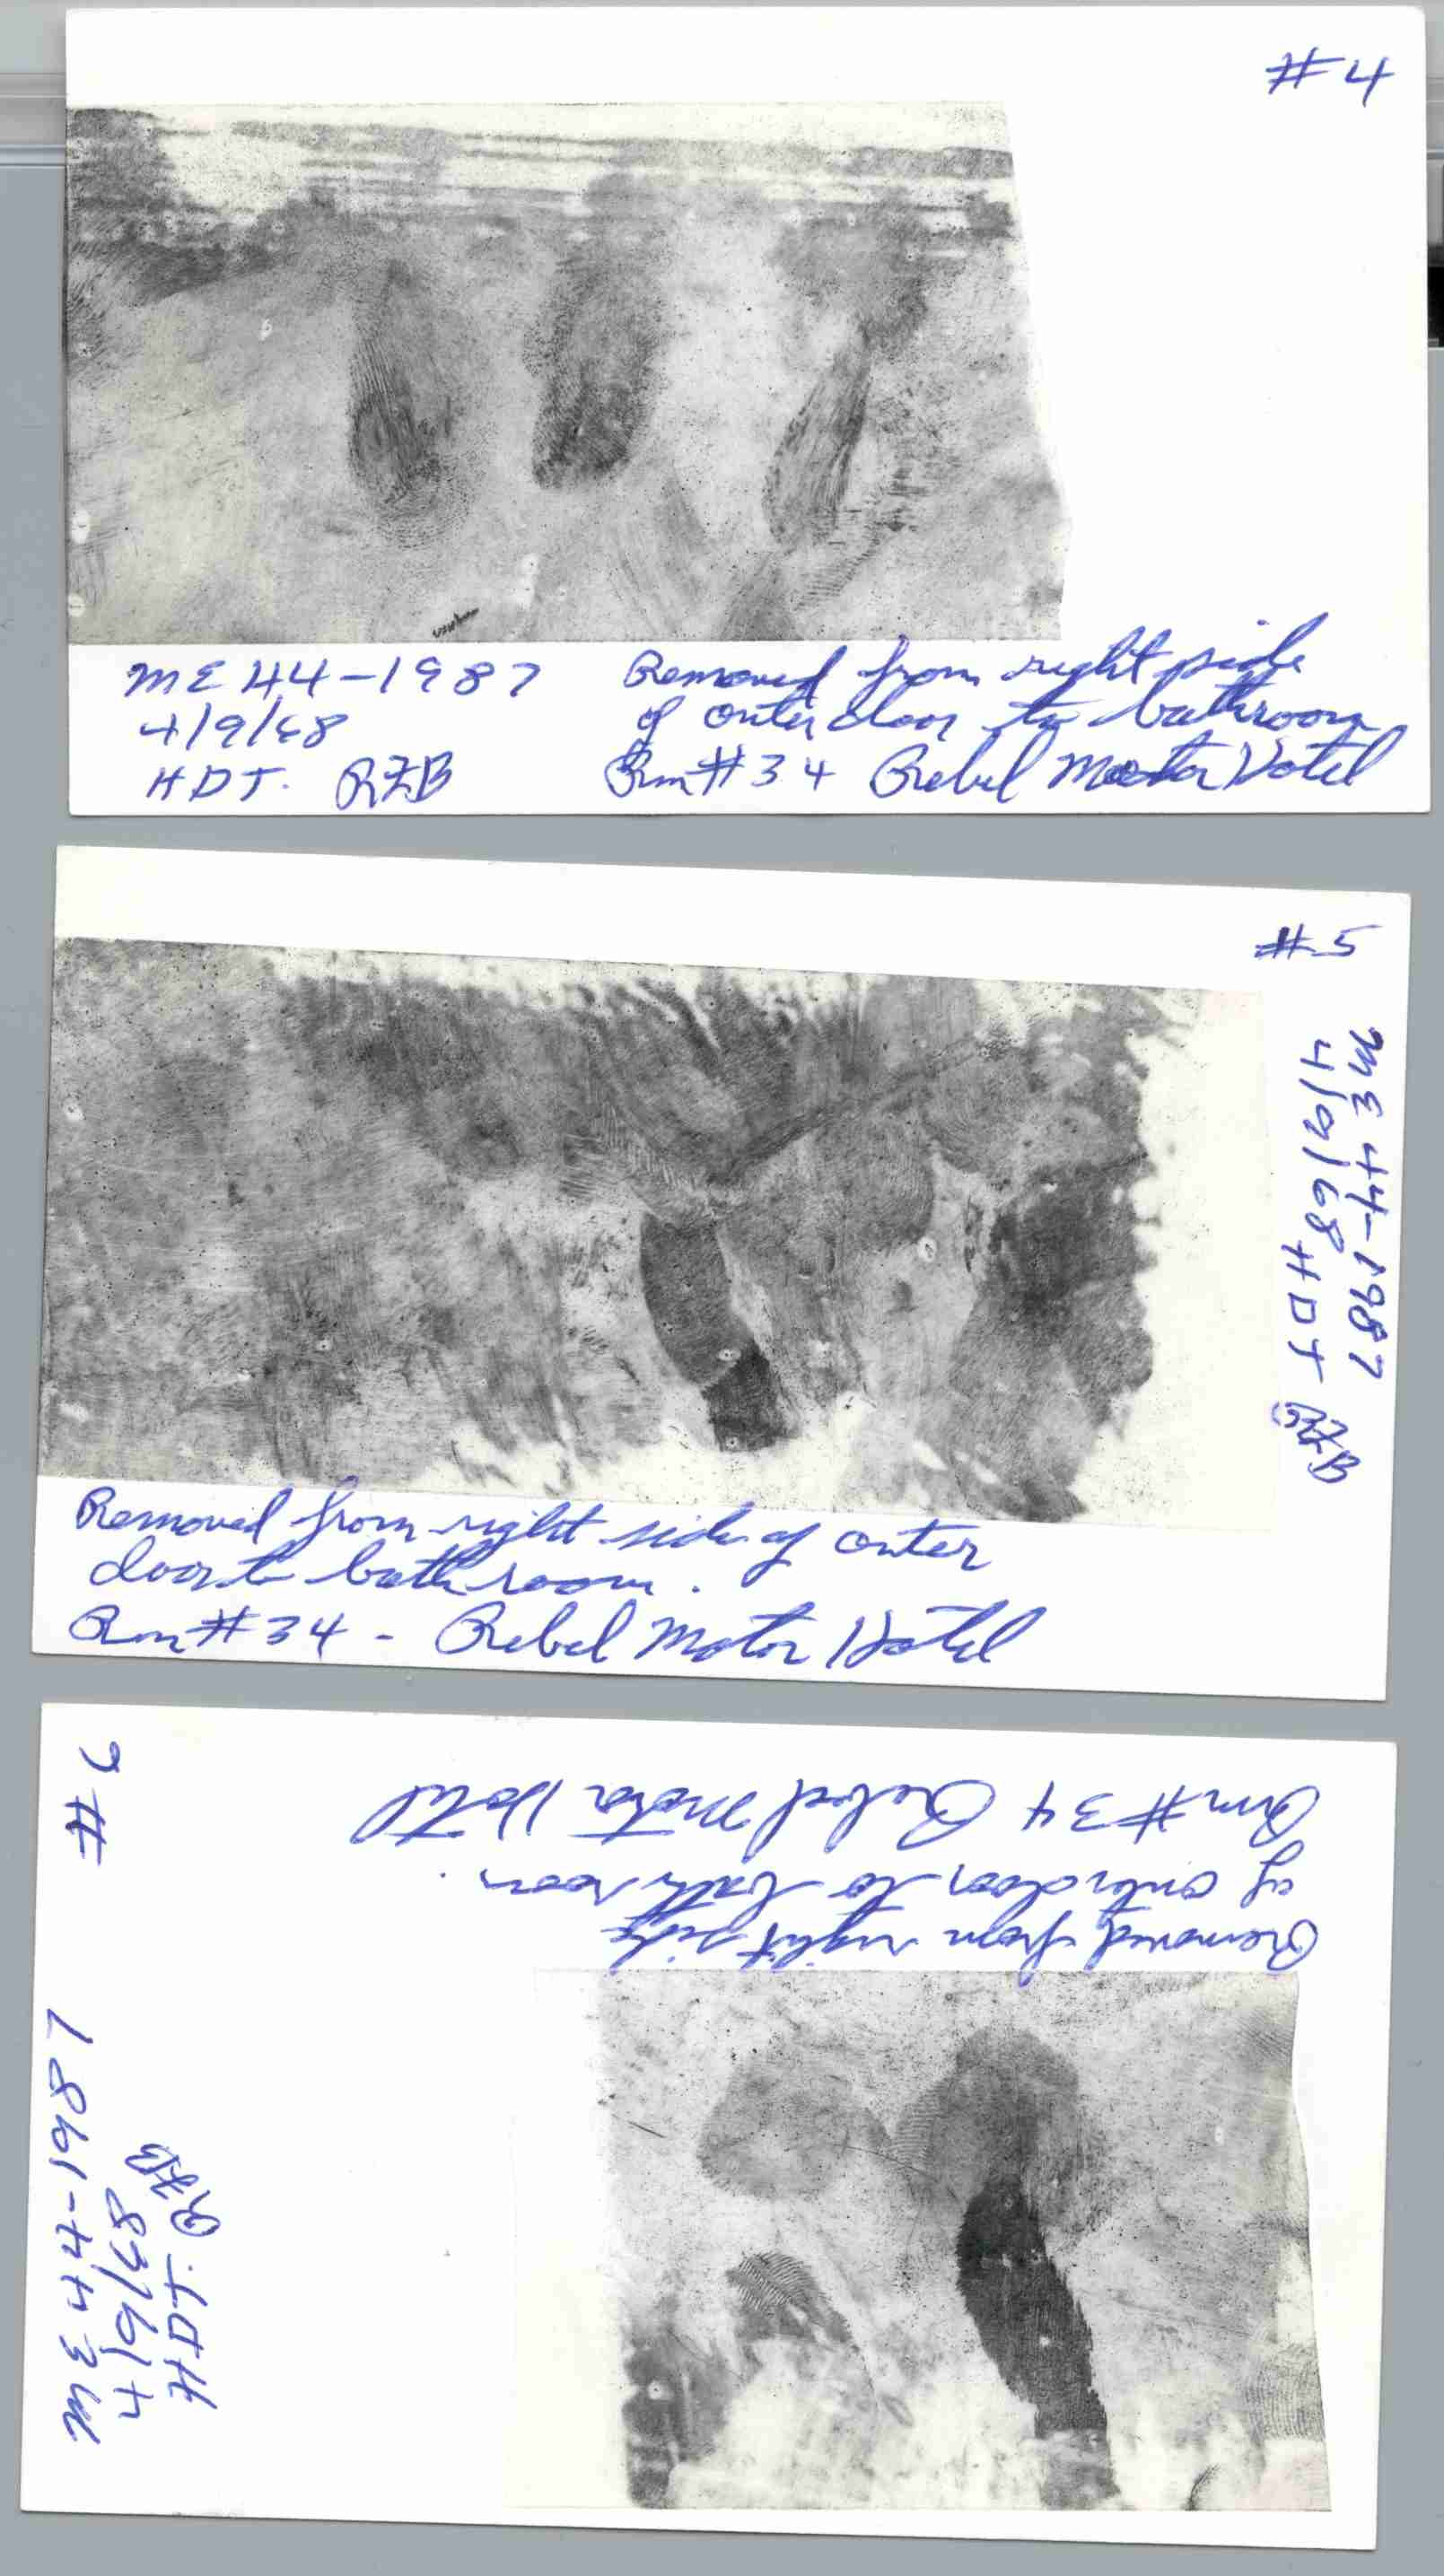 #4
ME 44-1987
4/9/68
HDT. RFB
Removed from right side
of outer door to bathroom
Rm #34 Rebel Motor Hotel
#5
ME 44-1987
4/9/68 HDT
Removed from right side of outer
door to bathroom.
Rm #34 - Rebel Motor Hotel
#
ME 44-1987
4/9/68
HDT. RFB
Removed from right side
of outer door to bathroom.
Rm #34 Rebel Motor Hotel